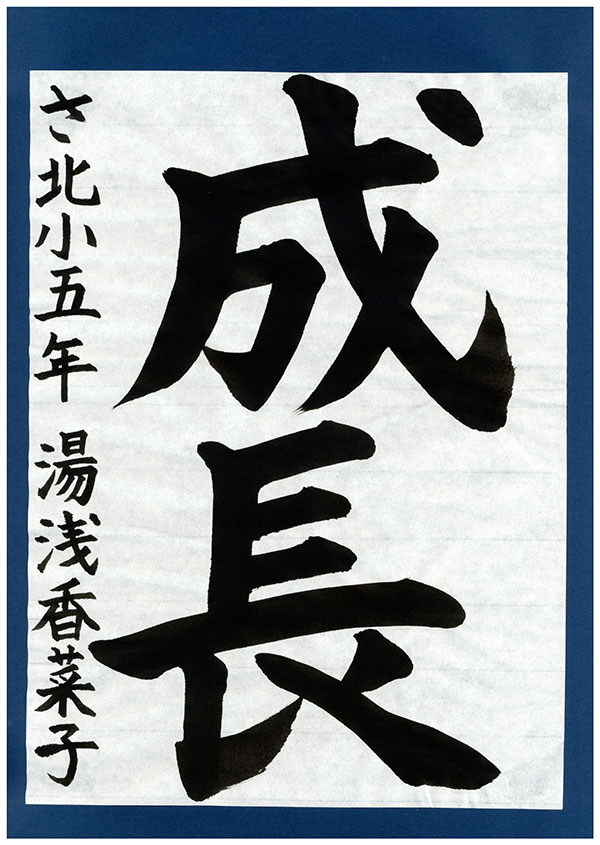 成長
さ北小五年 湯浅香菜子